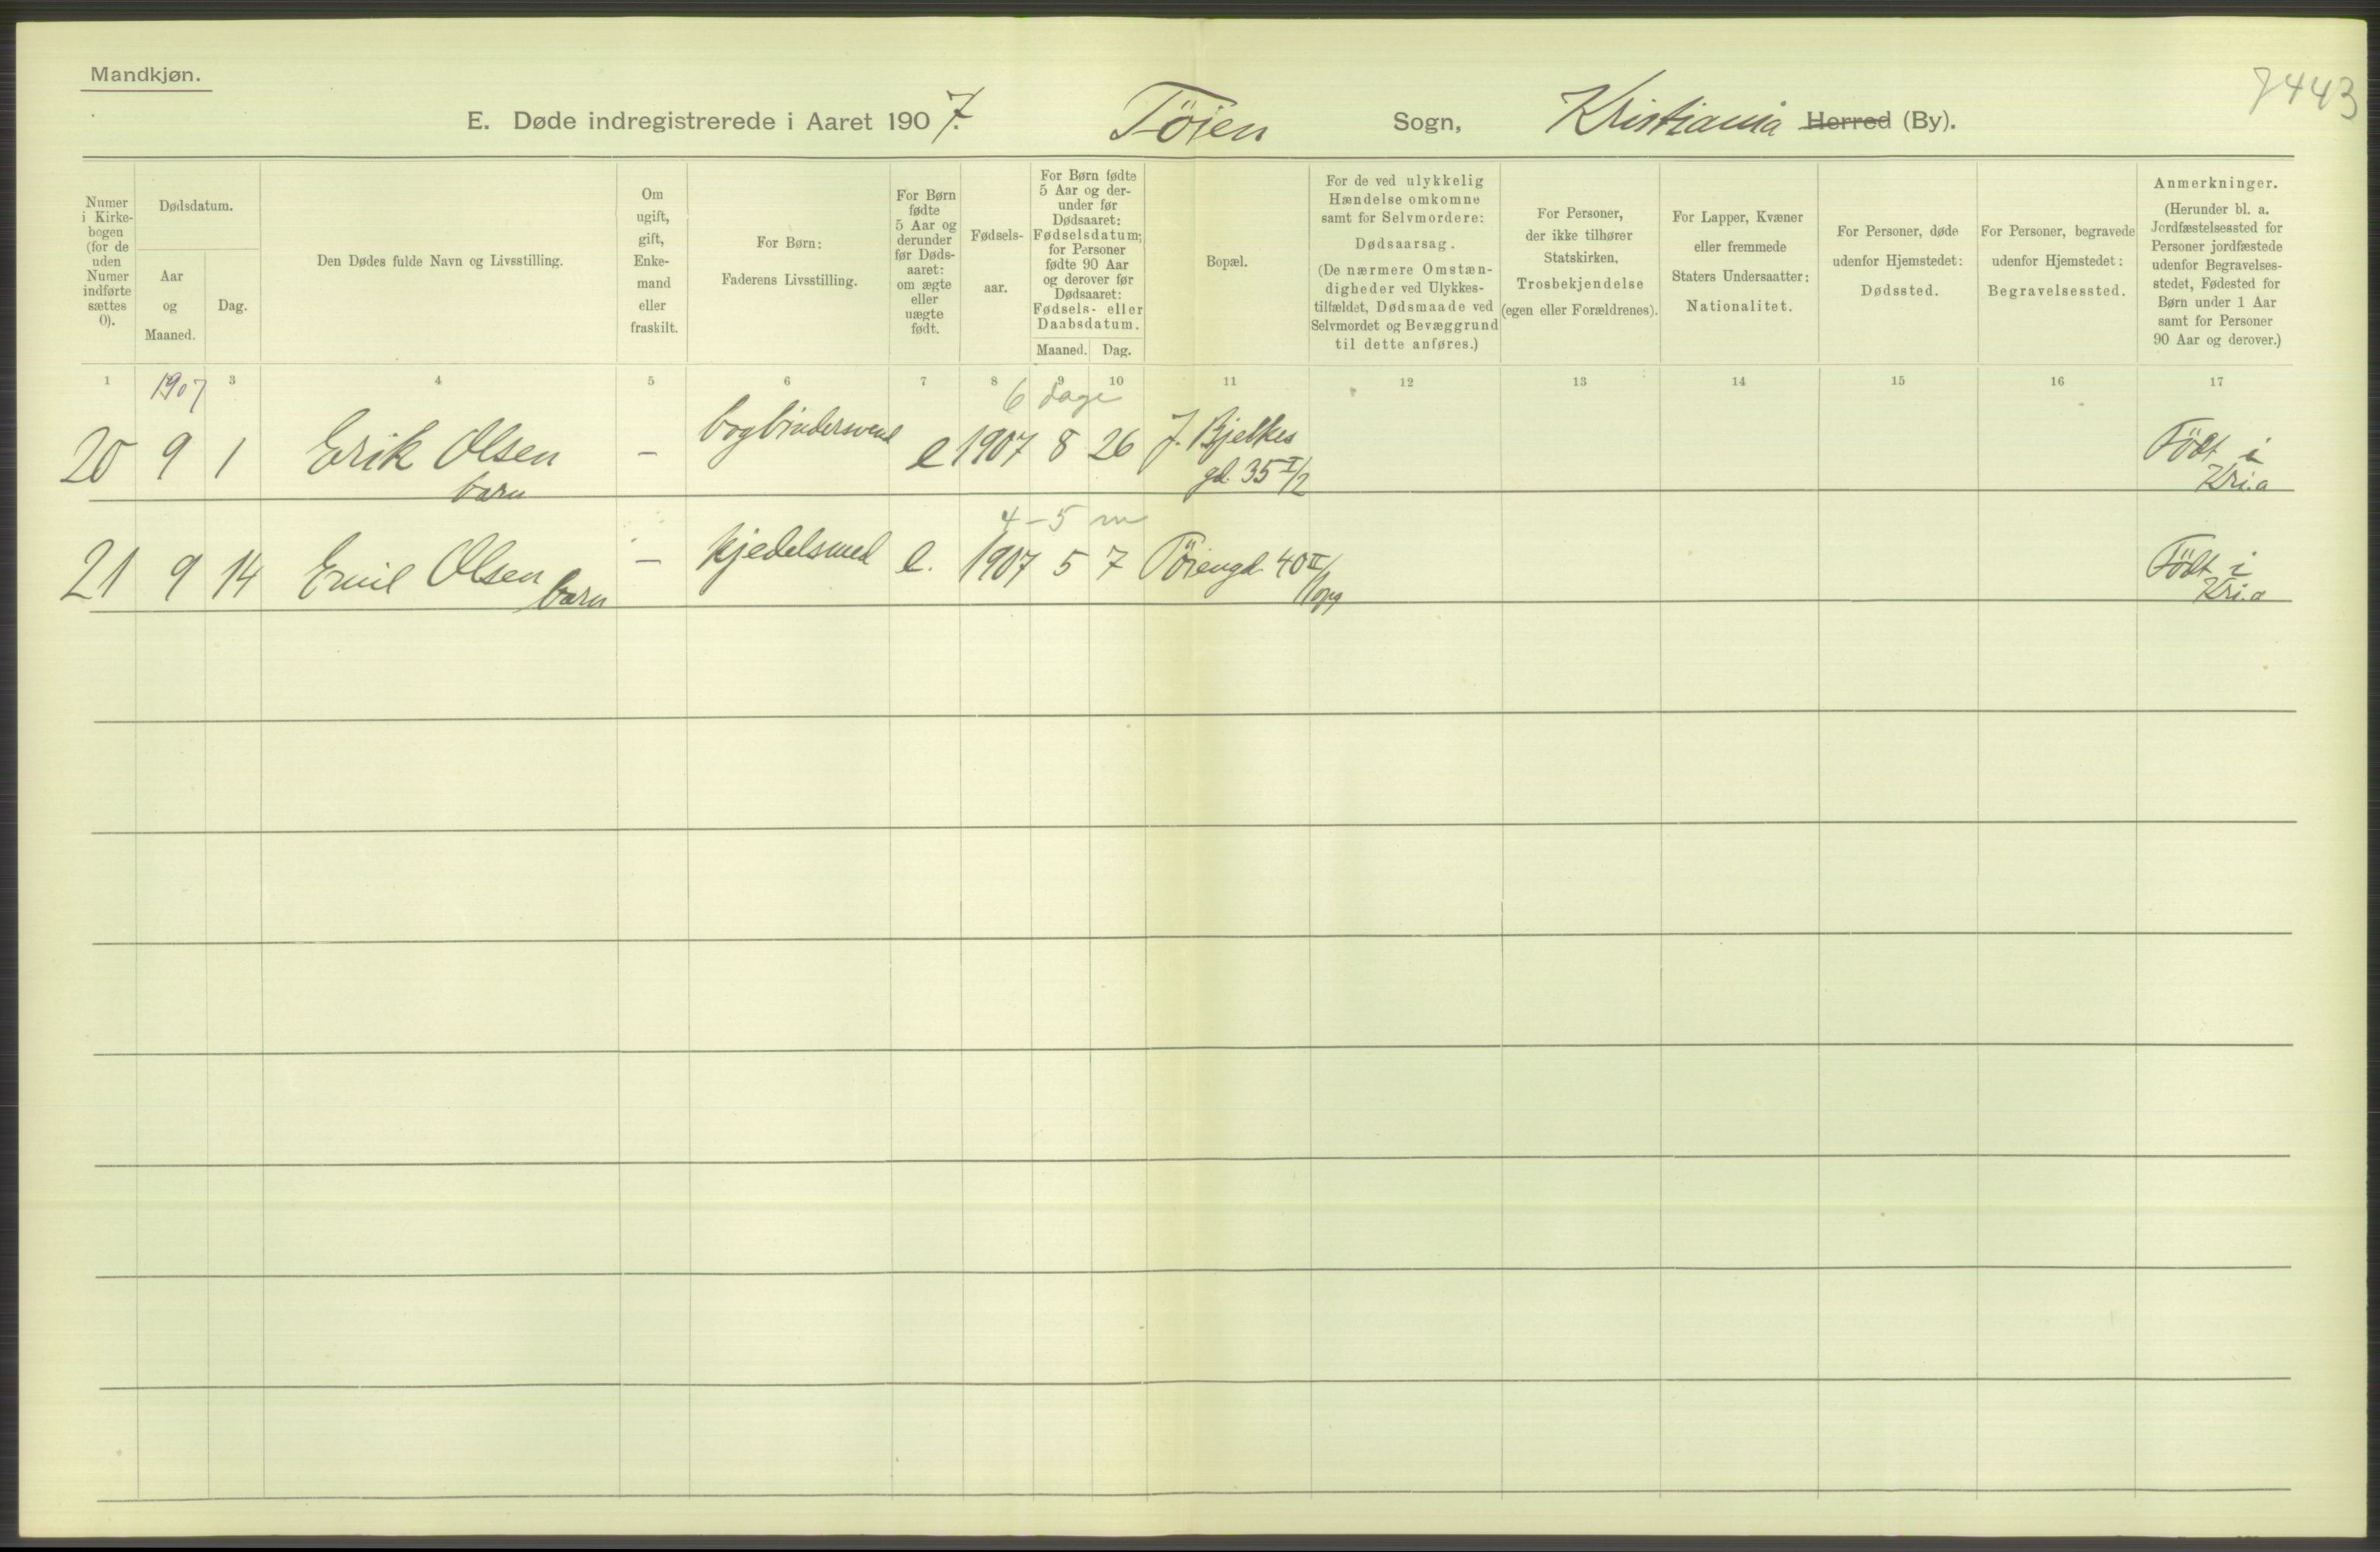 Mandkjøn.
7443
E. Døde indregistrerede i Aaret 1907. Töien Sogn, Kristiania Herred (By).
Numer i Kirkebogen (for de uden Numer indførte sættes 0).
Dødsdatum.
Aar og Maaned.
Dag.
Den Dødes fulde Navn og Livsstilling.
Om ugift, gift, Enkemand eller fraskilt.
For Børn:
Faderens Livsstilling.
For Børn fødte 5 Aar og derunder før Dødsaaret: om ægte eller uægte født.
Fødselsaar.
For Børn fødte 5 Aar og derunder før Dødsaaret: Fødselsdatum; for Personer fødte 90 Aar og derover før Dødsaaret: Fødsels- eller Daabsdatum.
Maaned. Dag.
Bopæl.
For de ved ulykkelig Hændelse omkomne samt for Selvmordere:
Dødsaarsag.
(De nærmere Omstændigheder ved Ulykkestilfældet, Dødsmaade ved Selvmordet og Bevæggrund til dette anføres.)
For Personer, der ikke tilhører Statskirken,
Trosbekjendelse
(egen eller Forældrenes).
For Lapper, Kvæner eller fremmede Staters Undersaatter:
Nationalitet.
For Personer, døde udenfor Hjemstedet:
Dødssted.
For Personer, begravede udenfor Hjemstedet:
Begravelsessted.
Anmerkninger.
(Herunder bl. a. Jordfæstelsessted for Personer jordfæstede udenfor Begravelsesstedet, Fødested for Børn under 1 Aar samt for Personer 90 Aar og derover.)
1 3 4 5 6 7 8 9 10 11 12 13 14 15 16 17
1907
6 dage
20 9 1 Erik Olsen barn – bogbindersvend e 1907 8 26 J. Bjelkes gd. 35 I/2 Födt i Kri.a
4-5 m
21 9 14 Emil Olsen barn – Kjedelsmed e. 1907 5 7 Töiengd. 40 II/1opg Födt i Kri.a